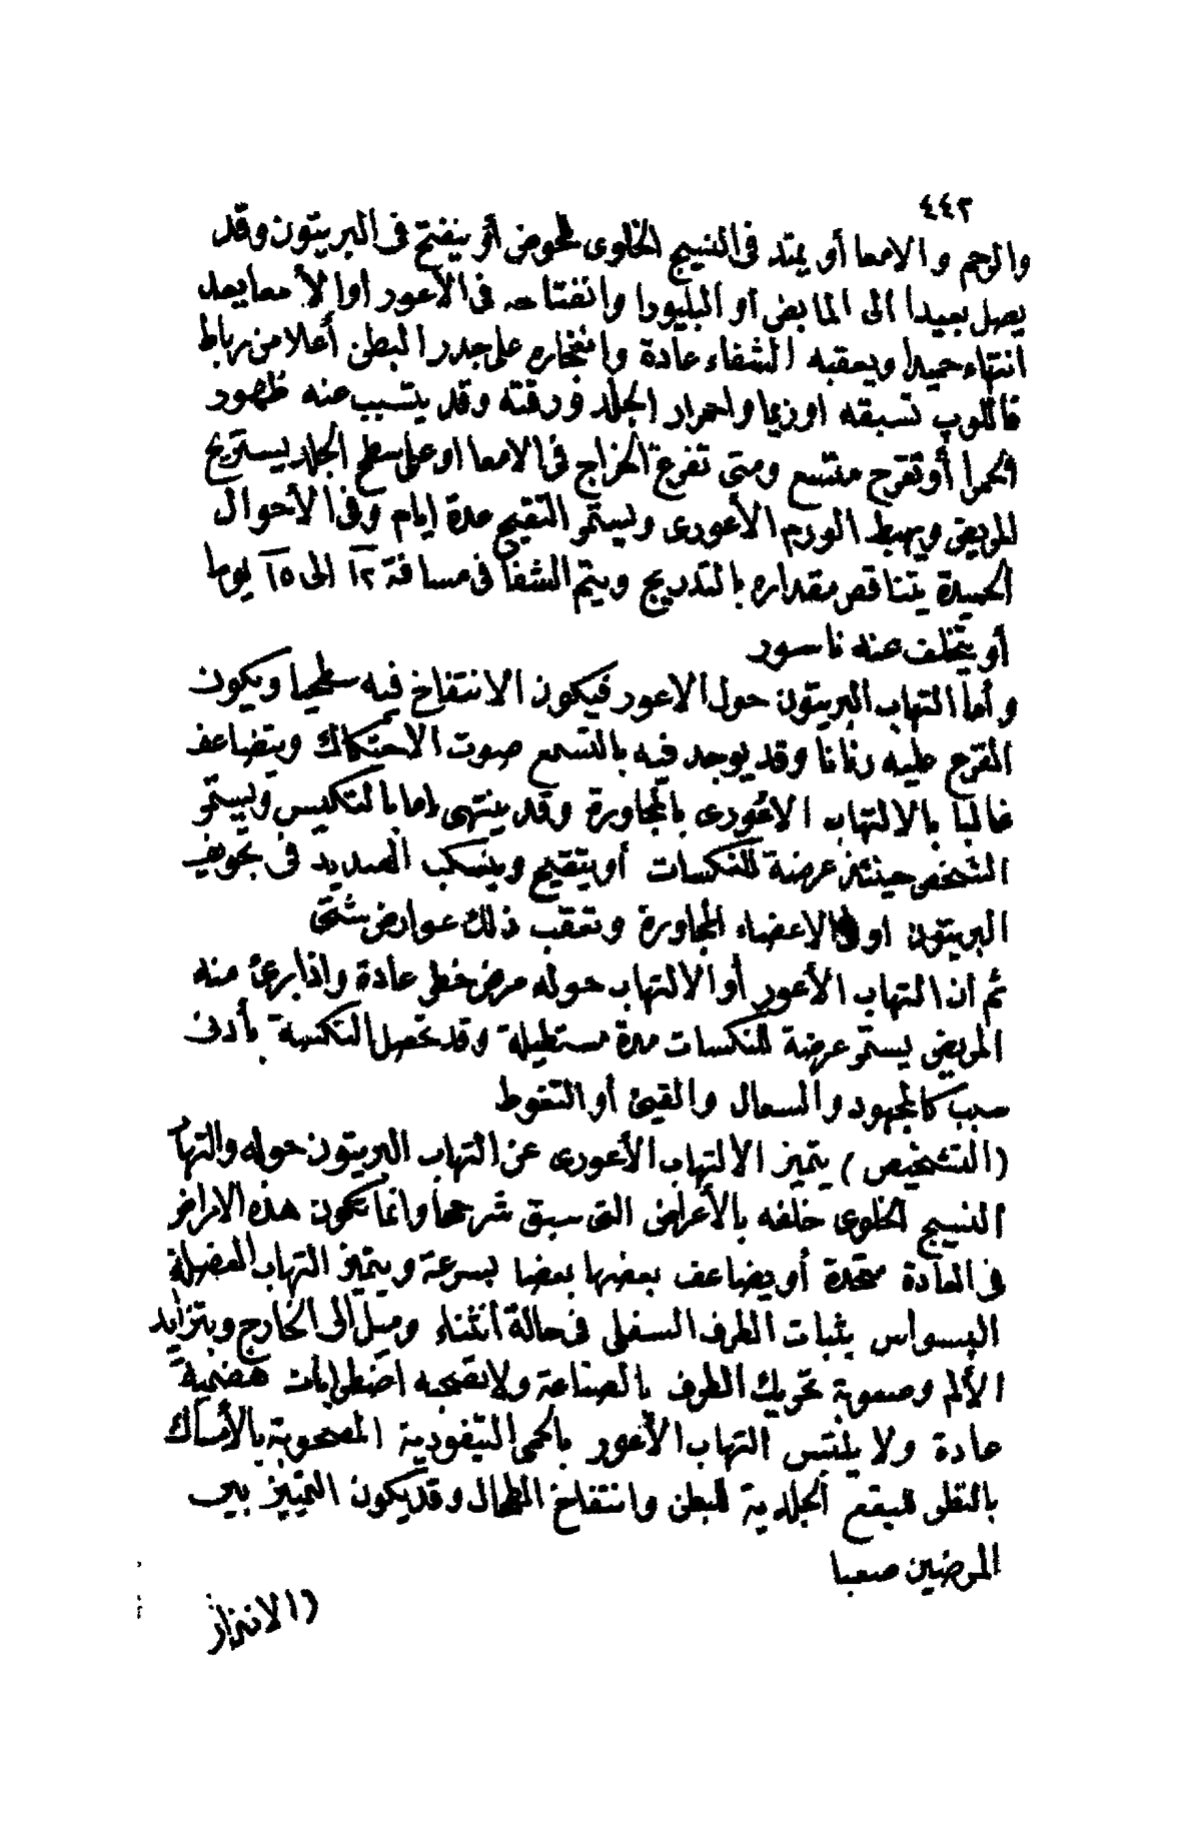 ٤٤٢
والرحم والامعا أو يمتد فى النسيج الخلوى للحوض أو ينفتح فى البريتون وقد
يصل بعيدا الى المابض أو البليورا وانفتاحه فى الاعور او الأمعا يعد
انتهاء حميدا ويعقبه الشفاء عادة وانفجاره على جدر البطن أعلا من رباط
فاللوب تسبقه اوزيما واحمرار الجلد ورقته وقد يتسبب عنه ظهور
الحمرا أو تقرح متسع ومتى تفرغ الخراج فى الامعا او على سطح الجلد يستريح
المريض ويهبط الورم الأعورى ويستمر التقيح عدة ايام وفى الأحوال
الحميدة يتناقص مقداره بالتدريج ويتم الشفا فى مسافة ١٢ الى ١٥ يوما
أو يتخلف عنه ناسور
وأما التهاب البريتون حول الاعور فيكون الانتفاخ فيه سطحيا ويكون
القرع عليه رنانا وقد يوجد فيه بالتسمع صوت الاحتكاك ويتضاعف
غالبا بالالتهاب الاعورى بالمجاورة وقد ينتهى إما بالتكيس ويستمر
الشخص حينئذ عرضة للنكسات أو يتقيح وينسكب الصديد فى تجويف
البريتون او الاعضاء المجاورة وتعقب ذلك عوارض شتى
ثم أن التهاب الأعور أو الالتهاب حوله مرض خطر عادة واذا برئ منه
المريض يستمر عرضة للنكسات مدة مستطيلة وقد تحصل النكسة بأدنى
سبب كالمجهود والسعال والقيئ أو التغوط
(التشخيص) يتميز الالتهاب الأعورى عن التهاب البريتون حوله والتهاب
النسيج الخلوى خلفه بالأعراض التى سبق شرحها وانما تكون هذه الامراض
فى العادة متحدة أو يضاعف بعضها بعضا بسرعة ويتميز التهاب العضلة
البسواس بثبات الطرف السفلى فى حالة انثناء وميل الى الخارج وبتزايد
الألم وصعوبة تحريك الطرف بالصناعة ولا تصحبه اضطرابات هضمية
عادة ولا يلتبس التهاب الأعور بالحمى التيفودية المصحوبة بالأمساك
بالنظر للبقع الجلدية للبطن وانتفاخ الطحال وقد يكون التمييز بين
المرضين صعبا
(الانذار